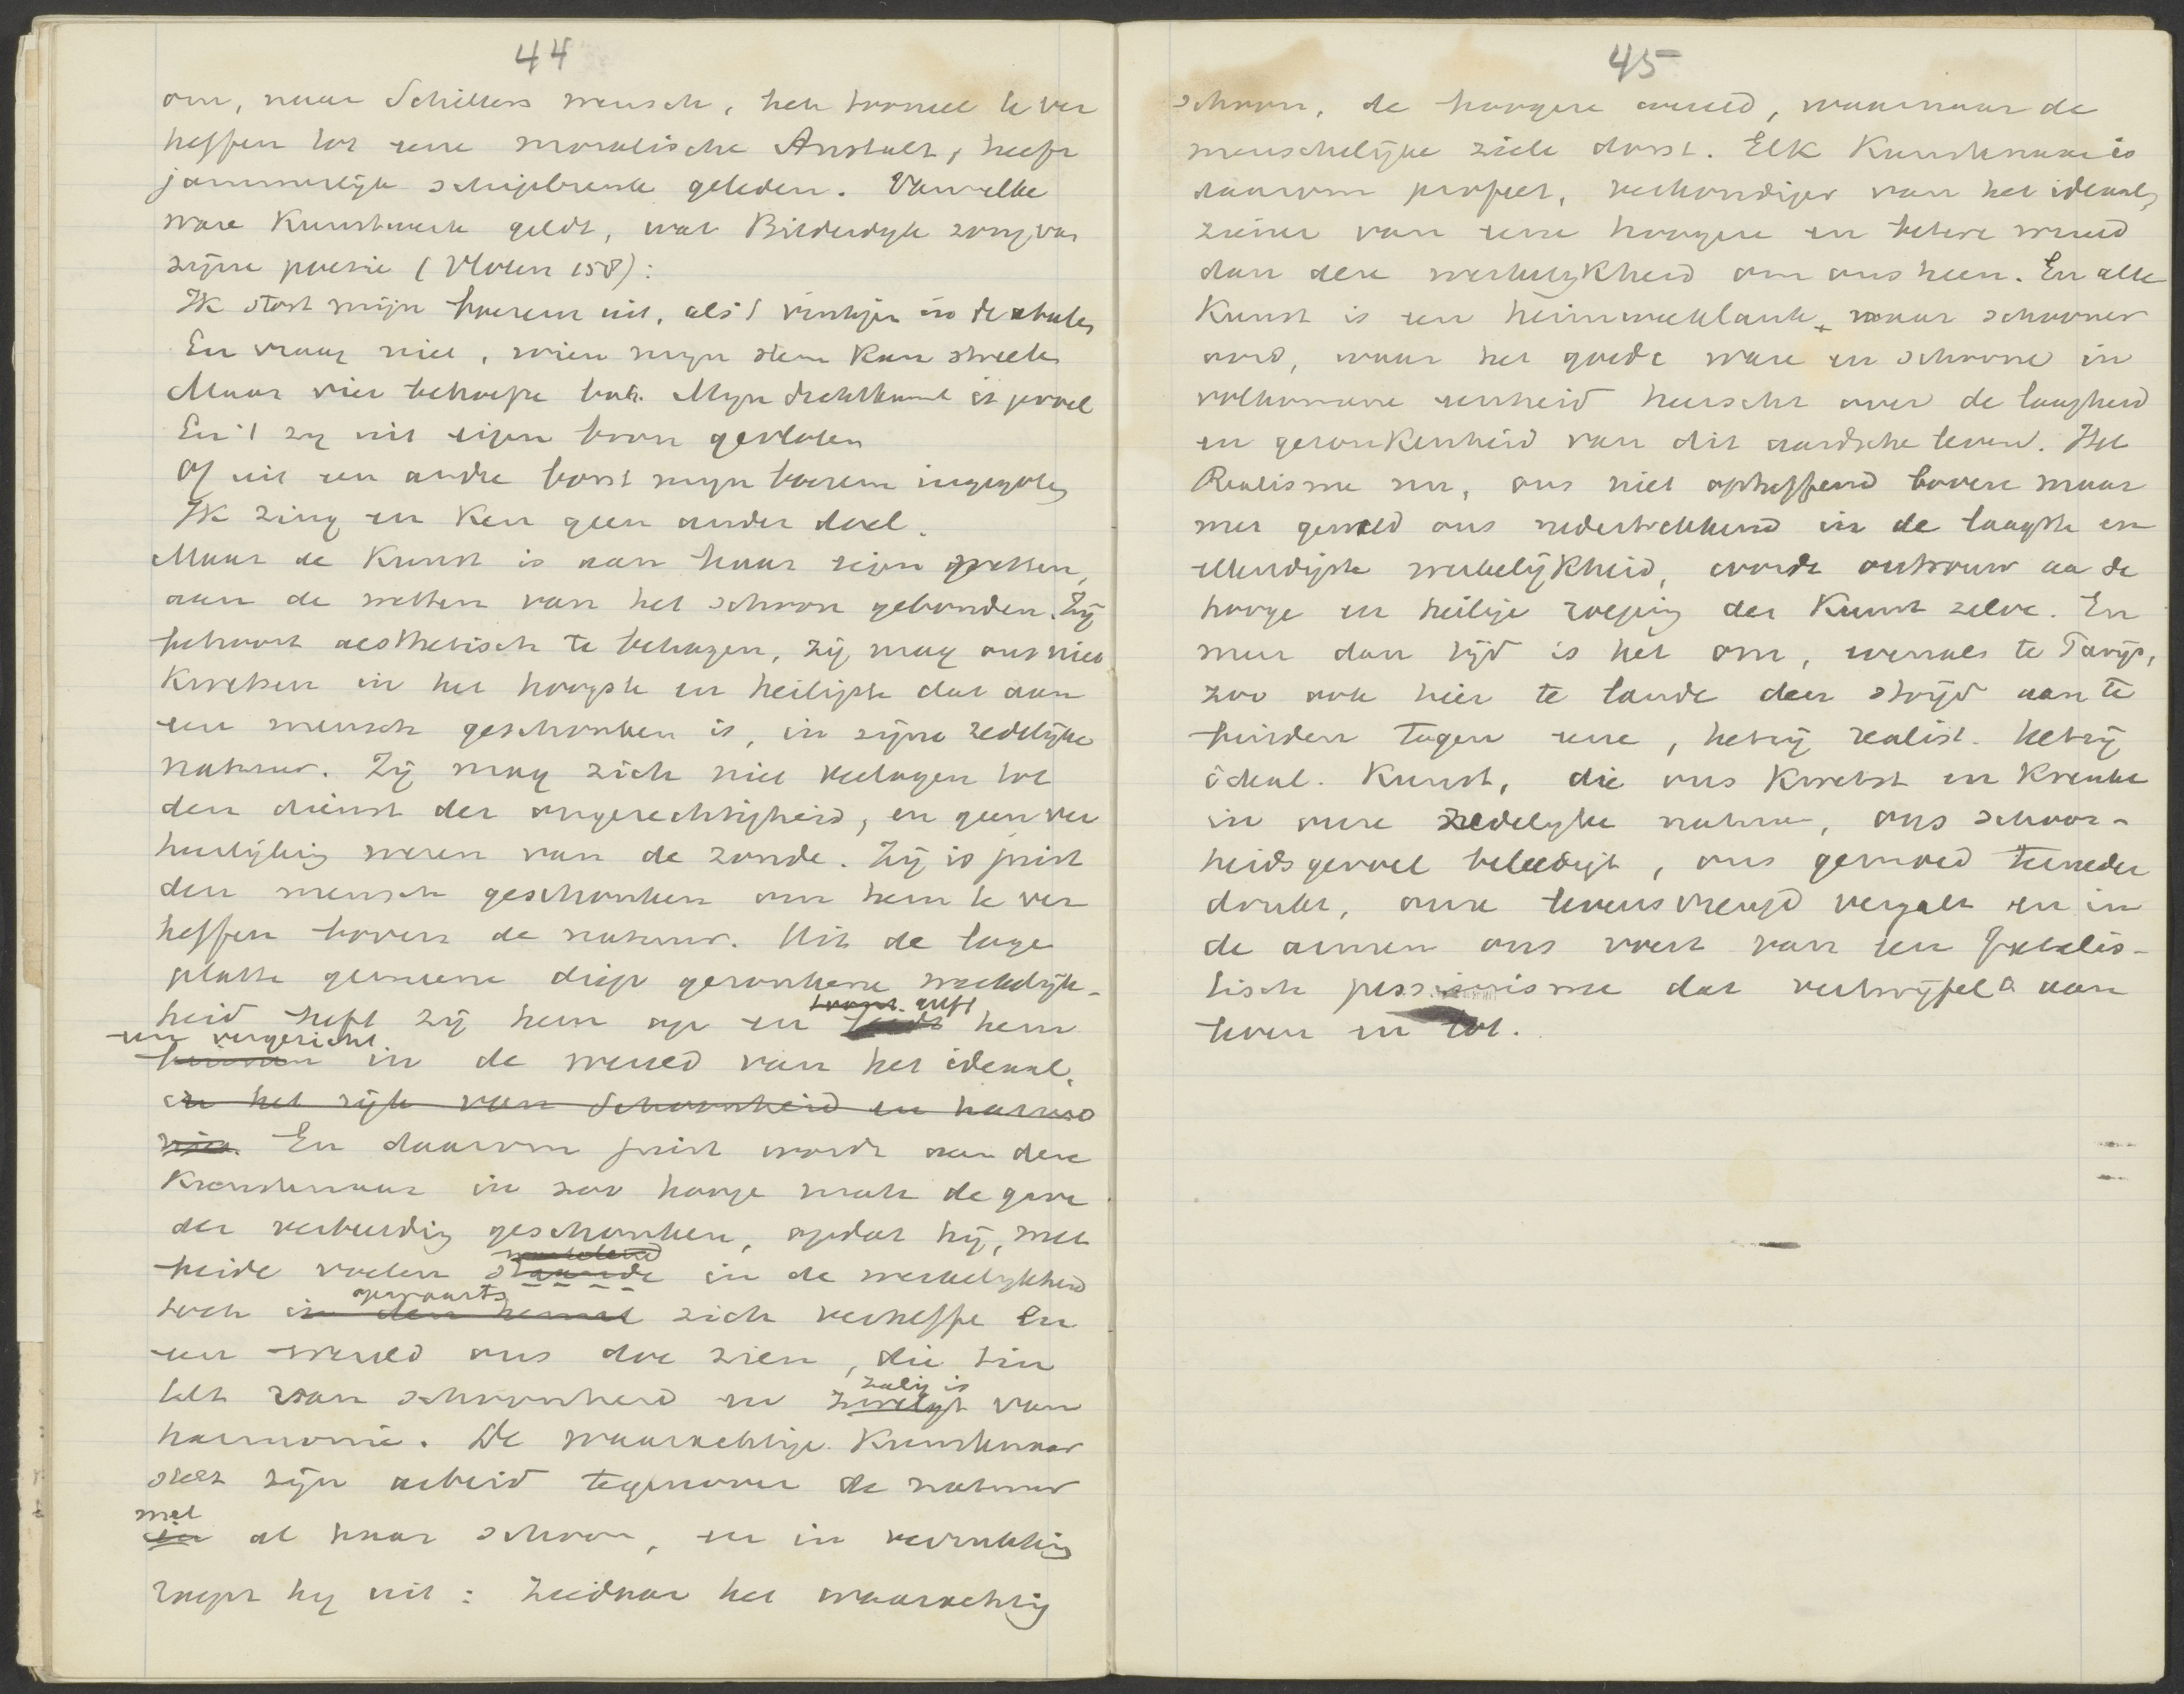 44
om, naar Schillers wensch, het tooneel te ver
heffen tot eene moralische Anstalt, heeft
jammerlijk schipbreuk geleden. Van elk
ware Kunstwerk geldt, wat Bilderdyk zong van
zijne poesie (Vloten 158):
Ik stort mijn boezem uit, als 't vinkjen in de abeelen
En vraag niet, wien mijn stem kan streelen
Maar vier behoefte bot. Mijn dichtkunst is gevoel
En 't zij uit eigen bron gevloten
Of uit een andre borst mijn boezem ingegoten
Ik zing en Ken geen ander doel.
Maar de Kunst is aan haar eigen wetten,
aan de wetten van het schoon gebonden. Zij
behoort aesthetisch te behagen, zij mag ons niet
Kwetsen in het hoogste en heiligste dat aan
een mensch geschonken is, in zijne zedelijke
natuur. Zij mag zich niet verlagen tot
den dienst der ongerechtigheid, en geen ver
heerlijking wezen van de zonde. Zij is juist
den mensch geschonken om hem te ver
heffen boven de natuur. Uit de lage
platte gemeene diep gezonkene werkelijk-
heid heft zij hem op en hem
een vergezicht
in de wereld van het ideaal,
in het rijk van Schoonheid en harmo
nie. En daarom juist wordt aan den
Kunstenaar in zoo hooge mate de gave
der verbeelding geschonken, opdat hij, met
beide voeten staande in de werkelijkheid
opwaarts
toch in den hemel zich verheffe en
een wereld ons doe zien, die tin
zalig is
telt van schoonheid en van
harmonie. De waarachtige Kunstenaar
stelt zijn arbeid tegenover de natuur
met
in al haar schoon, en in verrukking
roept hij uit: ziedaar het waarachtig
45
schoon, de hoogere wereld, waarnaar de
menschelijke ziele dorst. Elk Kunstenaar is
daarom profeet, verkondiger van het ideaal,
ziener van eene hoogere en betere wereld
dan deze werkelijkheid om ons heen. En alle
Kunst is een heimweeklank, naar schooner
oord, waar het goede ware en schoone in
volkomene eenheid heerscht over de laagheid
en gezonkenheid van dit aardsche leven. Het
Realisme nu, ons niet opheffend boven maar
met geweld ons nedertrekkend in de laagste en
ellendigste werkelijkheid, wordt ontrouw aan de
hooge en heilige roeping der Kunst zelve. En
meer dan tijd is het om, evenals te Parijs,
zoo ook hier te lande den strijd aan te
binden tegen eene, hetzij realist. hetzij
ideal. Kunst, die ons Kwetst en Krenkt
in onze zedelijke natuur, ons schoon-
heidsgevoel beleedigt, ons gemoed terneder
drukt, onze levensvreugd vergalt en in
de armen ons voert van een fatalis-
tisch pessimisme dat vertwijfeld aan
leven en lot.